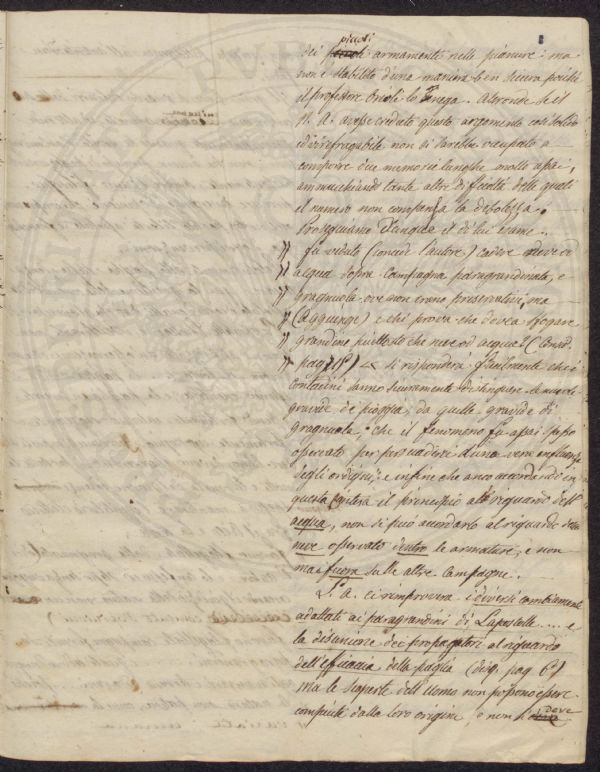 piccoli
dei piccoli armamenti nelle pianure: ma
non è stabilito d'una maniera ben sicura poiché
il professore Orioli lo nega. Altronde se il
N. A. avesse creduto questo argomento così solido
ed irrefragabile non si sarebbe occupato a
comporre due memorie lunghe molto assai,
ammucchiando tante altre difficoltà delle quali
il numero non compensa la debolezza.
Proseguiamo dunque il di lui esame.
" fu veduto (concede l'autore) cadere neve od
" acqua sopra campagna paragrandinata, e
" gragnuola ove non erano preservativi, ma
" (aggiunge) e chi prova che dovea sfogare
" grandine piuttosto che neve od acqua? (
" pag. si risponderà facilmente che i
contadini sanno sicuramente distinguere le nuvole
gravide de pioggia, da quelle gravide di
gragnuola, che il fenomeno fu assai spesso
osservato per persuadersi d'una vera influenza
degli ordigni, e infine che anco accordando in
questa il principio al riguardo dell'
acqua, non si può accordarlo al riguardo della
neve osservata dentro le armature, e non
mai fuora sulle altre campagne.
L'A. ci rimprovera i diversi cambiamenti
adattati ai paragrandini di Lapostolle.... e
la disunione dei propagatori al riguardo
dell'efficacia della paglia (disp. pag. 6)
ma le scoperte dell'Uomo non possono essere
compiute dalla loro origine, e non
dove